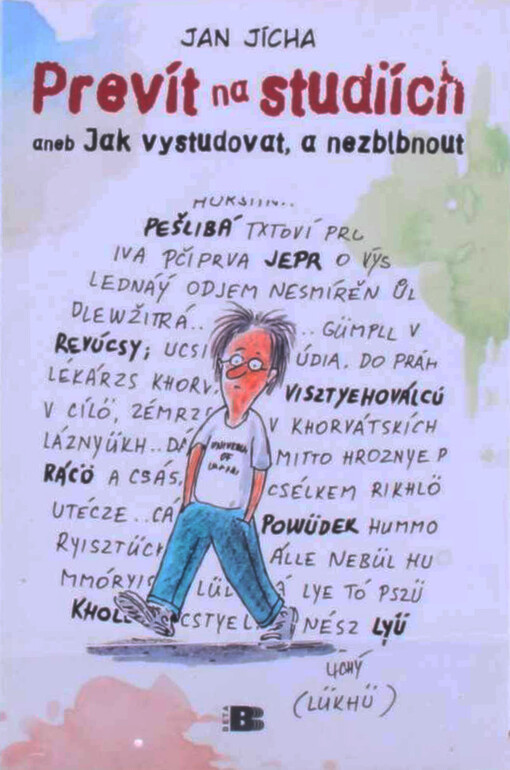 JAN JÍCHA
Prevít na studiích
aneb Jak vystudovat, a nezblbnout
PEŠLIBÁ TXTOVÍ PRL
IVA PČIPRVA JEPR O VÝS
LEDNÁÝ ODJEM NESMÍRĚN ŮL
DLEWŽITRÁ.. ... GÜMPLL V
REVÚCSY; UCSI ÚDIA. DO PRÁH
LEKÁRZS KHORV. VISZTYEHOVÁLCÚ
V CÍLÖ, ZÉMRZS V KHORVÁTSKÍCH
LÁZNYÜKH..DÁ MITTO HROZNYE P
RÁCÖ A CSÁS, CSÉLKEM RIKHLÖ
UTÉCZE..CÁ POWÜDEK HUMMO
RYISZTÜCK ÁLLE NEBÜL HU
MMÓRYIS LÜL Á LYE TÓ PSZÜ
KHOLE CSTYEL NÉSZ LYÜ
ÜCHÝ
(LÜKHÜ)
UNIVERSI
OF
BETA B